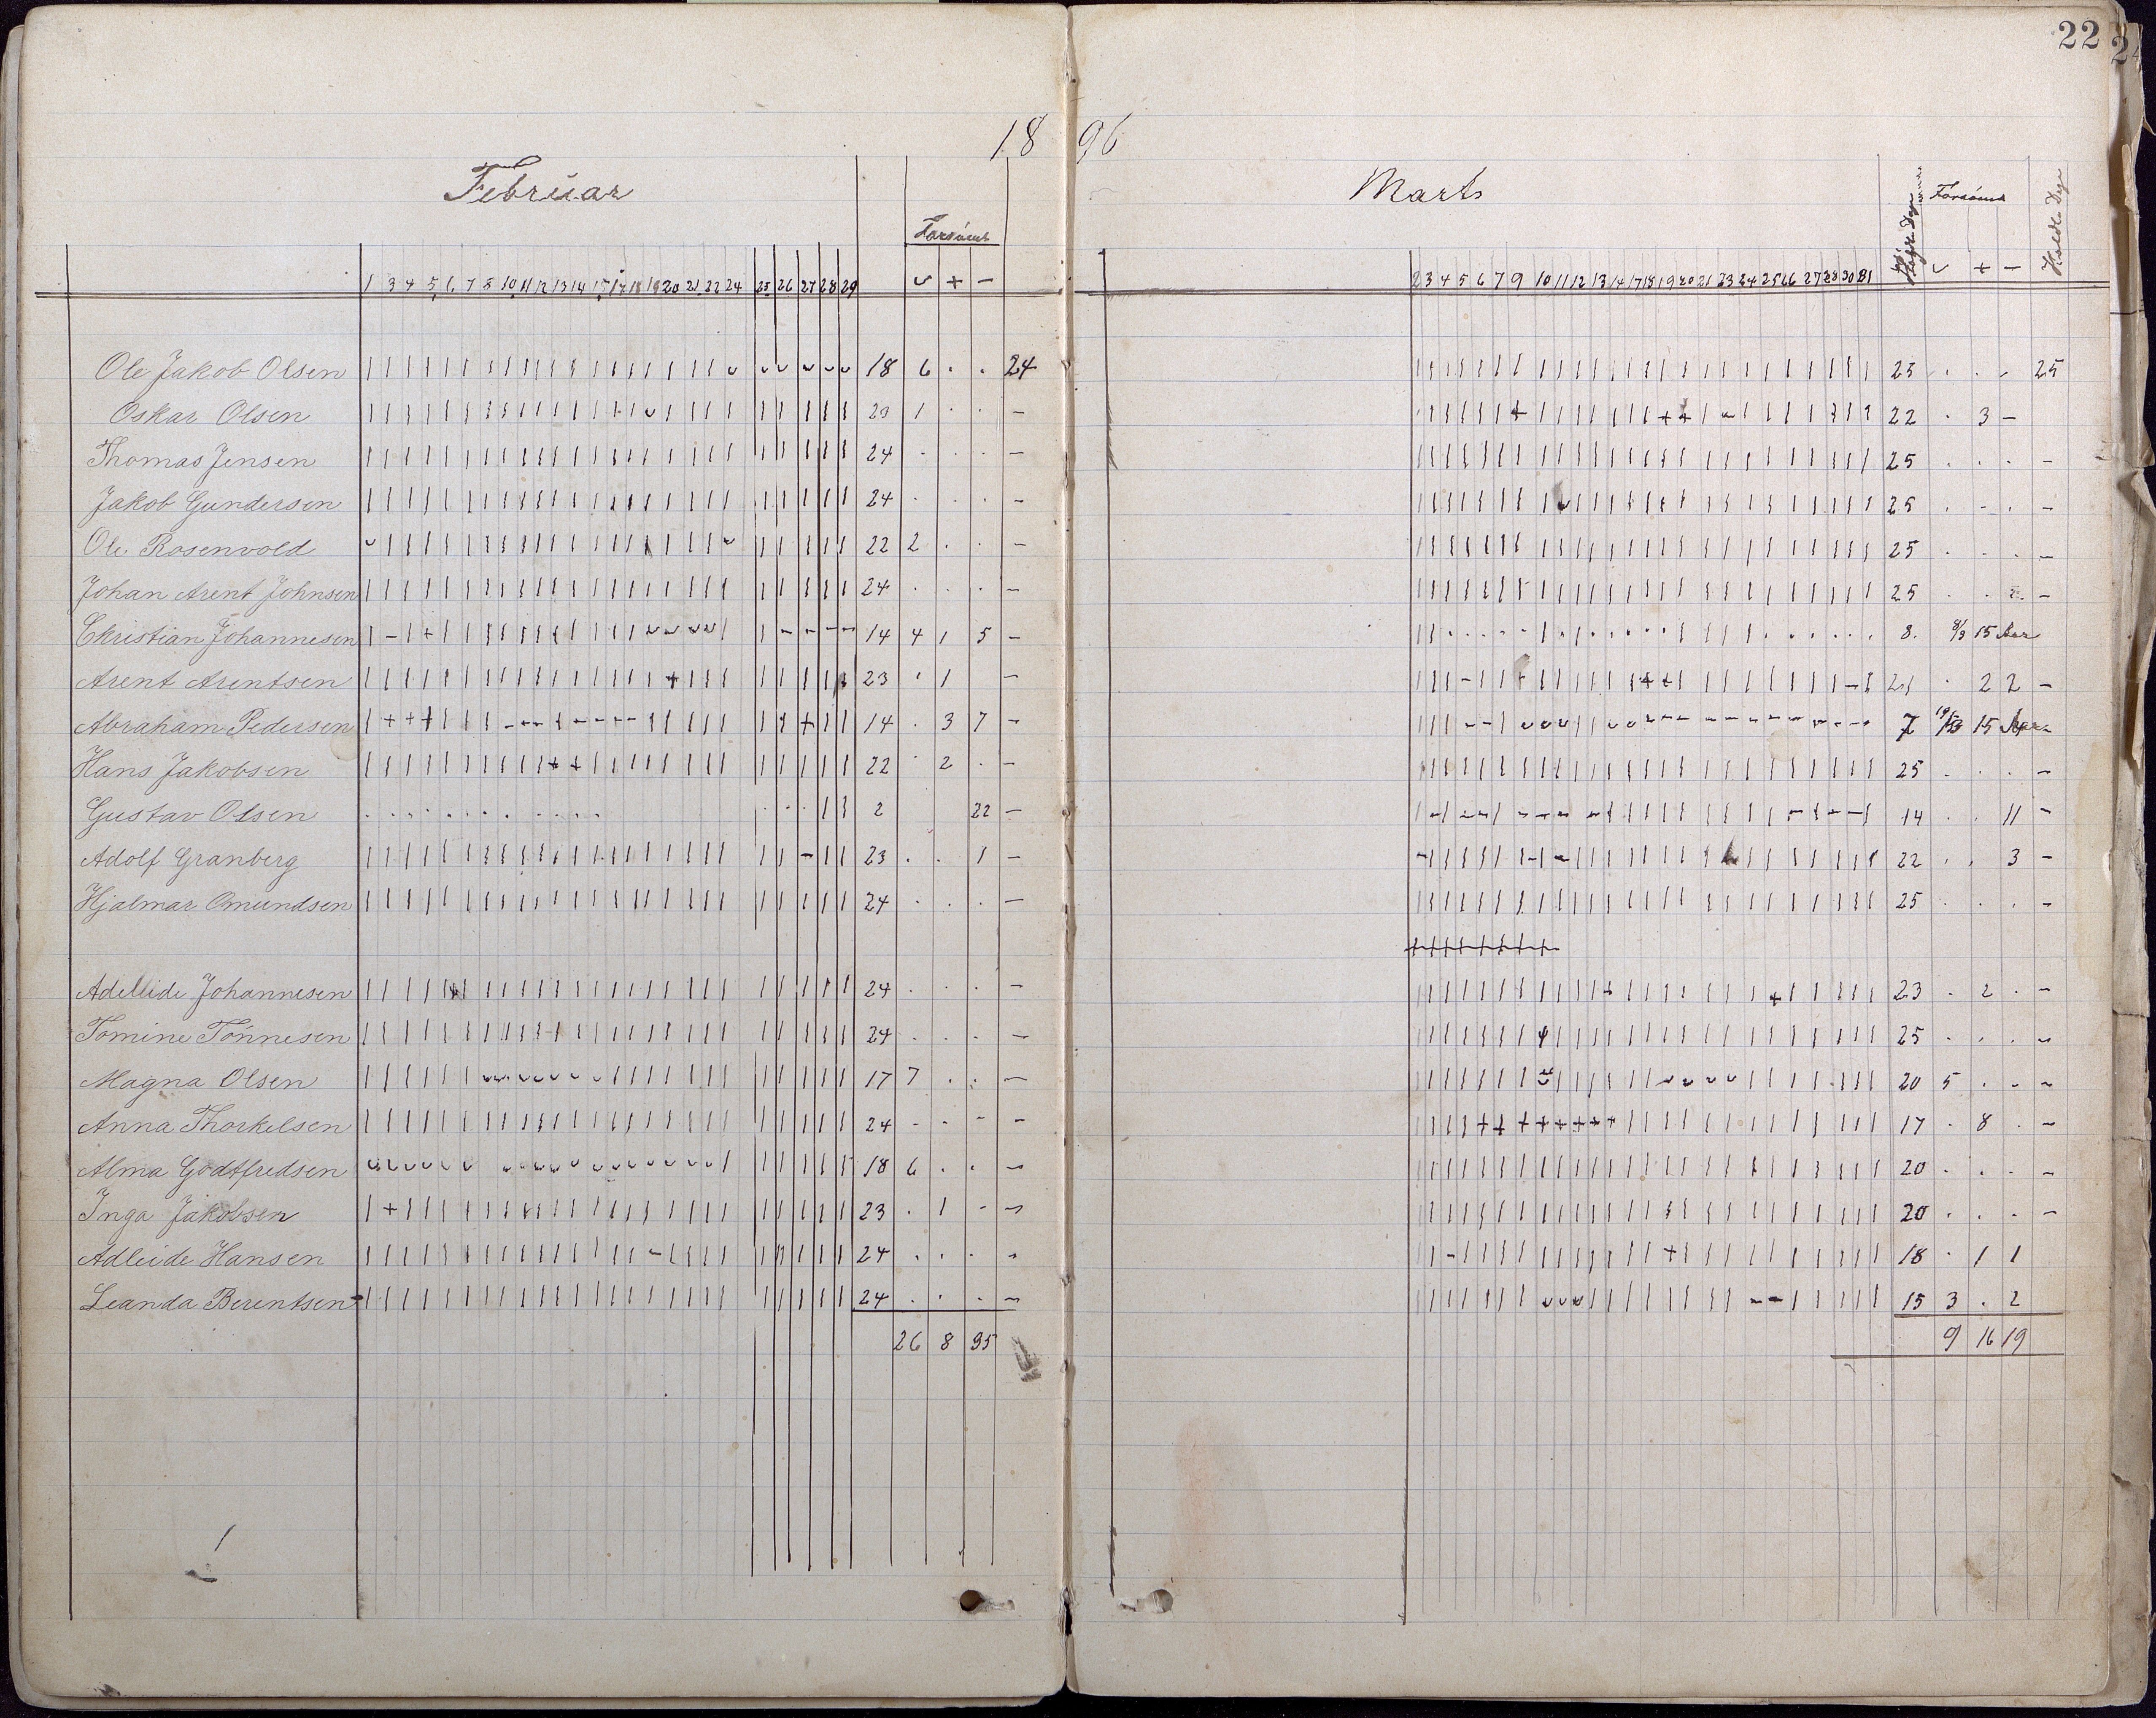 22
18 96
Februar
Forsömt
1 3 4 5 6 7 8 10 11 12 13 14 15 17 18 19 20 21 22 24 25 26 27 28 29 ᴗ + —
Ole Jakob Olsen 18 6 . . 24
Oskar Olsen 23 1 . . —
Thomas Jensen 24 . . . —
Jakob Gundersen 24 . . . —
Ole Rosenvold 22 2 . . —
Johan Arent Johnsen 24 . . . —
Christian Johannesen 14 4 1 5 —
Arent Arentsen 23 . 1 —
Abraham Pedersen 14 . 3 7 —
Hans Jakobsen 22 . 2 . —
Gustav Olsen 2 22 —
Adolf Granberg 23 . . 1 —
Hjalmar Omundsen 24 . . . —
Adeleide Johannesen 24 . . . —
Tomine Tönnesen 24 . . . —
Magna Olsen 17 7 . . —
Anna Thorkelsen 24 - . - —
Alma Godtfredsen 18 6 . . —
Inga Jakobsen 23 . 1 - —
Adleide Hansen 24 . . . -
Leanda Berentsen 24 . . . —
26 8 95
Marts
Forsömt
Holdte Dage
2 3 4 5 6 7 9 10 11 12 13 14 17 18 19 20 21 23 24 25 26 27 28 30 31 ᴗ + —
23 . . . 25
22 . 3 —
25 . . . —
25 . - . —
25 . . . —
25 . . . —
8. 8/3 15 Aar
21 . 2 2 —
7 15 Aar
25 . . . —
14 . . 11 —
22 . . 3 —
25 . . . —
23 . 2 . —
25 . . . —
20 5 . - —
17 . 8 . —
20 . . . —
20 . . . —
18 . 1 1
15 3 . 2
9 16 19